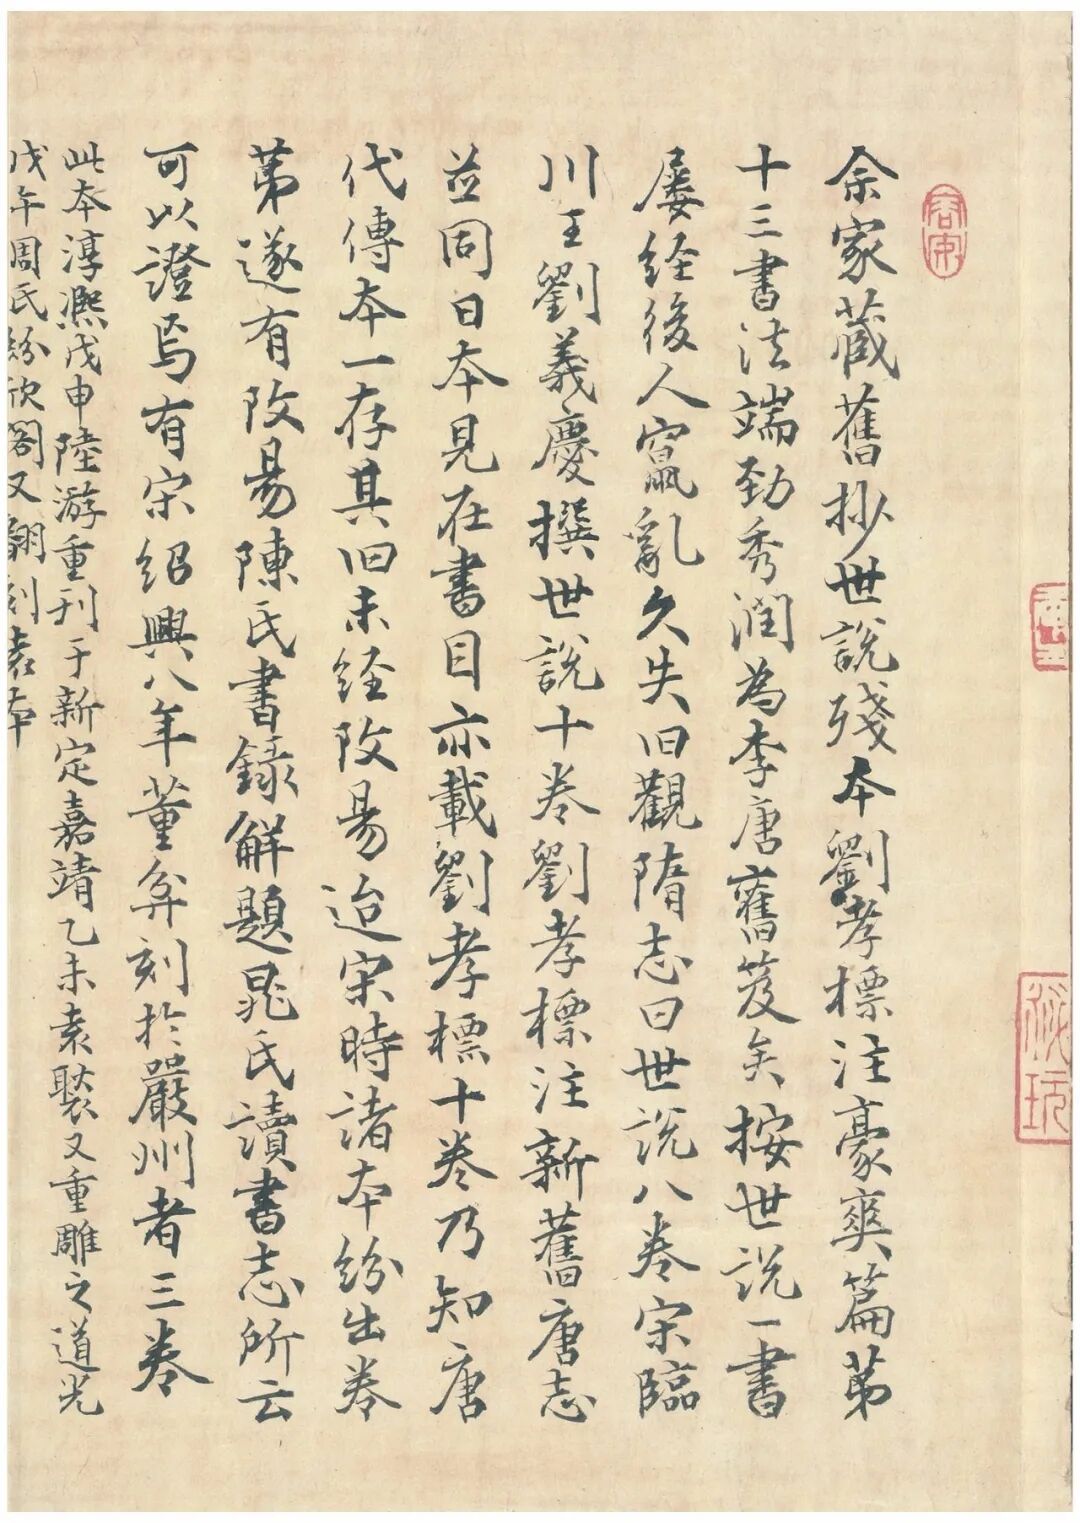 余家藏舊抄世說殘本劉孝標注豪爽篇第
十三書法端勁秀潤為李唐舊笈矣按世説一書
屡经後人竄亂久失旧觀隋志曰世説八卷宋臨
川王劉義慶撰世說十卷劉孝標注新舊唐志
並同日本見在書目亦載劉孝標十卷乃知唐
代傳本一存其旧未经改易迨宋時諸本紛出卷
第遂有改易陳氏書録解題晁氏讀書志所云
可以證焉有宋绍興八年董弅刻於嚴州者三卷
此本淳熙戊申陸游重刊于新定嘉靖乙未袁褧又重雕之道光
戊午周氏紛欣閣又翻刻袁本
珍玩